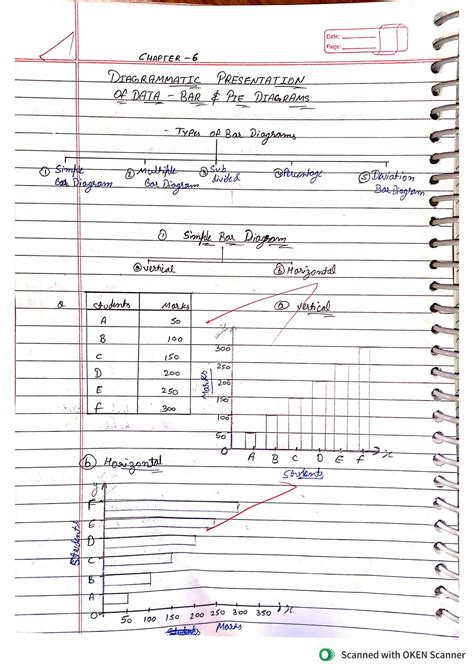 Date:
Page:
CHAPTER - 6
DIAGRAMMATIC PRESENTATION
OF DATA - BAR & PIE DIAGRAMS
- Types of Bar Diagrams
① Simple Bar Diagram
② Multiple Bar Diagram
③ Sub divided
④ Percentage
⑤ Deviation Bar Diagram
① Simple Bar Diagram
ⓐ vertical
ⓑ Horizontal
Q
Students Marks
A 50
B 100
C 150
D 200
E 250
F 300
ⓐ vertical
y
300
250
200
150
100
50
0
Marks
A B C D E F x
Students
ⓑ Horizontal
y
F
E
D
C
B
A
Students
0 50 100 150 200 250 300 350 x
Students Marks
Scanned with OKEN Scanner